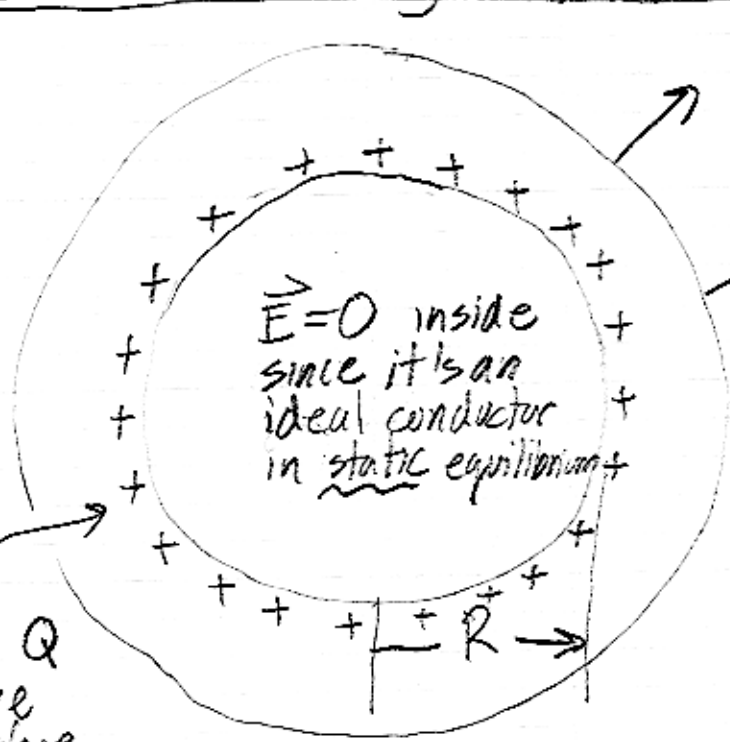 E⃗=0 inside
since it is an
ideal conductor
in static equilibrium
R
Q